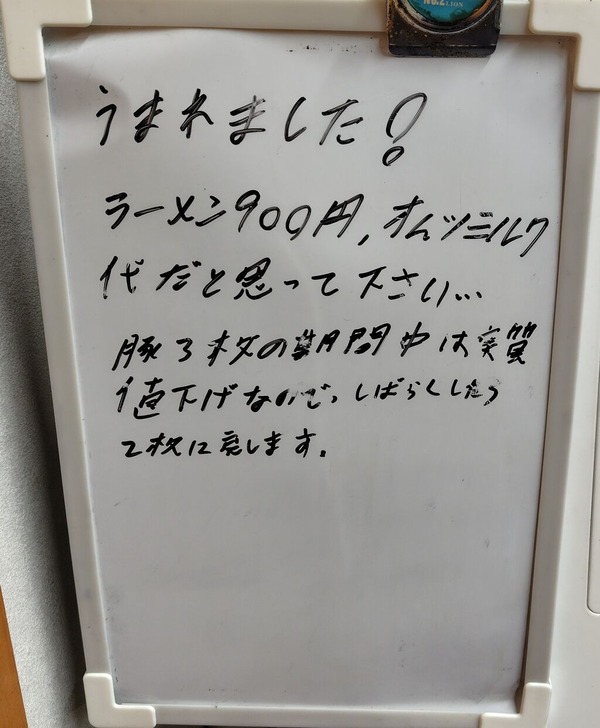 No.2 LION
うまれました!
ラーメン900円,オムツミルク
代だと思って下さい…
豚3枚の期間中は実質
値下げなので、しばらくしたら
2枚に戻します.